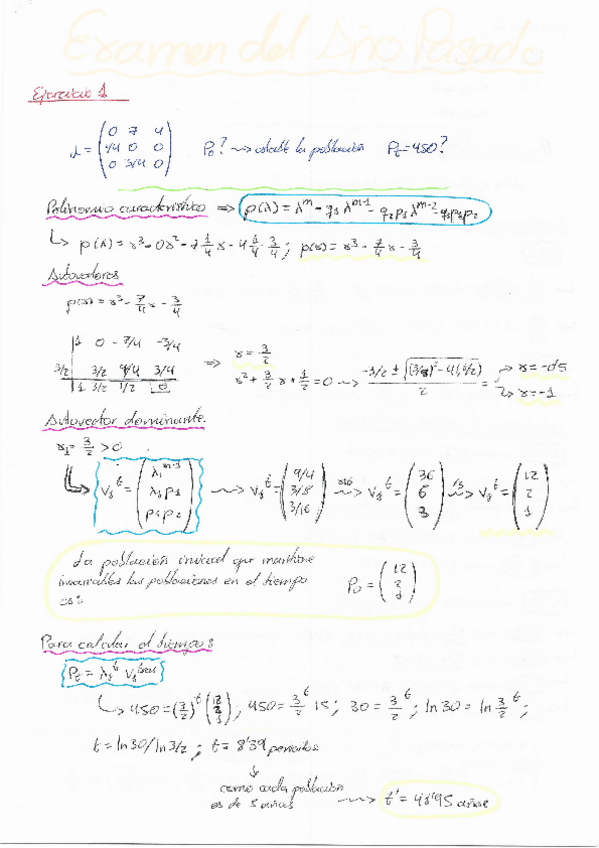 Examen del Año Pasado
Ejercicio 1
L = (0 7 4; 1/4 0 0; 0 3/4 0) P₀? ⇝ estable la población P_t = 450?
Polinomio característico ⇒ p(λ) = λ^m - q₁ λ^(m-1) - q₂p₁ λ^(m-2) - q₃p₁p₂
↳ p(λ) = x³ - 0x² - 7 1/4 x - 4 1/4 · 3/4 ; p(x) = x³ - 7/4 x - 3/4
Autovalores
p(x) = x³ - 7/4 x - 3/4
1 0 -7/4 -3/4
3/2 3/2 9/4 3/4
1 3/2 1/2 0
⇒ x = 3/2
x² + 3/2 x + 1/2 = 0 ⇝ (-3/2 ± √((3/2)² - 4(1/2)))/2 = x = -0'5
x = -1
Autovector dominante.
x₁ = 3/2 > 0
V₁ᵗ = (λ₁^(m-1); λ₁p₁; p₁p₂) ⇝ V₁ᵗ = (9/4; 3/8; 3/16) ⇝ V₁ᵗ = (36; 6; 3) ⇝ V₁ᵗ = (12; 2; 1)
La población inicial que mantiene
invariables las poblaciones en el tiempo
es: P₀ = (12; 2; 1)
Para calcular el tiempo:
P_t = λ₁ᵗ V₁
↳ 450 = (3/2)ᵗ (12; 2; 1) ; 450 = 3/2ᵗ 15 ; 30 = 3/2ᵗ ; ln 30 = ln 3/2ᵗ ;
t = ln 30 / ln 3/2 ; t = 8'39 periodos
↓
como cada población
es de 5 años ⇝ t' = 41'95 años